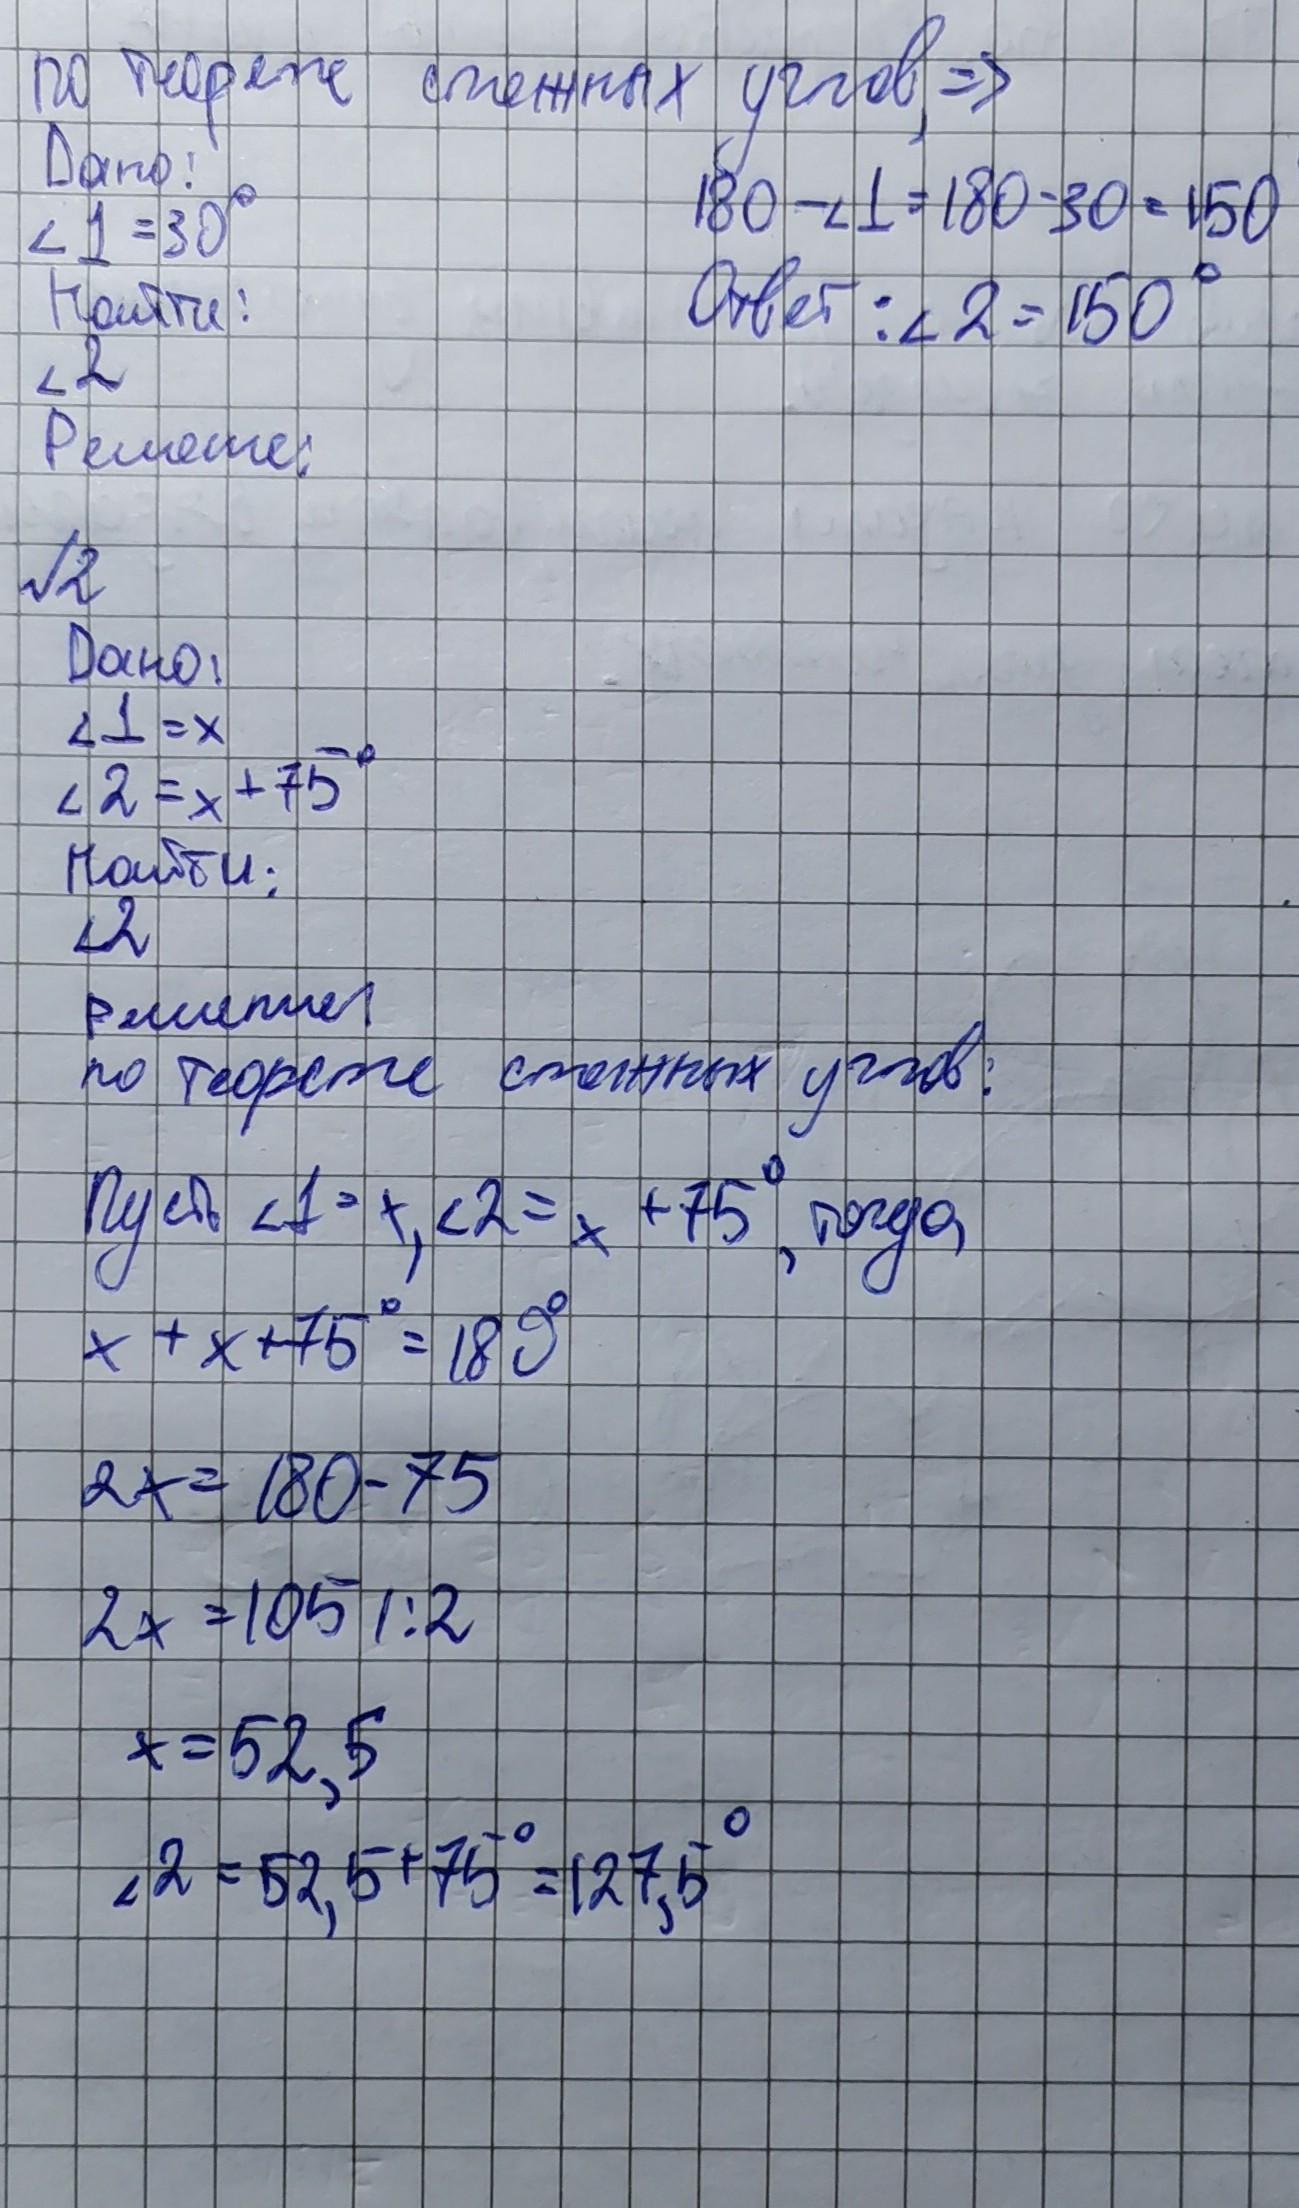 по теореме смежных углов, =>
Дано:
<1 = 30°
Найти:
<2
Решение:
180 - <1 = 180 - 30 = 150
Ответ: <2 = 150°
√2
Дано:
<1 = x
<2 = x + 75°
Найти:
<2
Решение:
по теореме смежных углов:
Пусть <1 = x, <2 = x + 75°, тогда
x + x + 75° = 180°
2x = 180 - 75
2x = 105 | : 2
x = 52,5
<2 = 52,5 + 75° = 127,5°